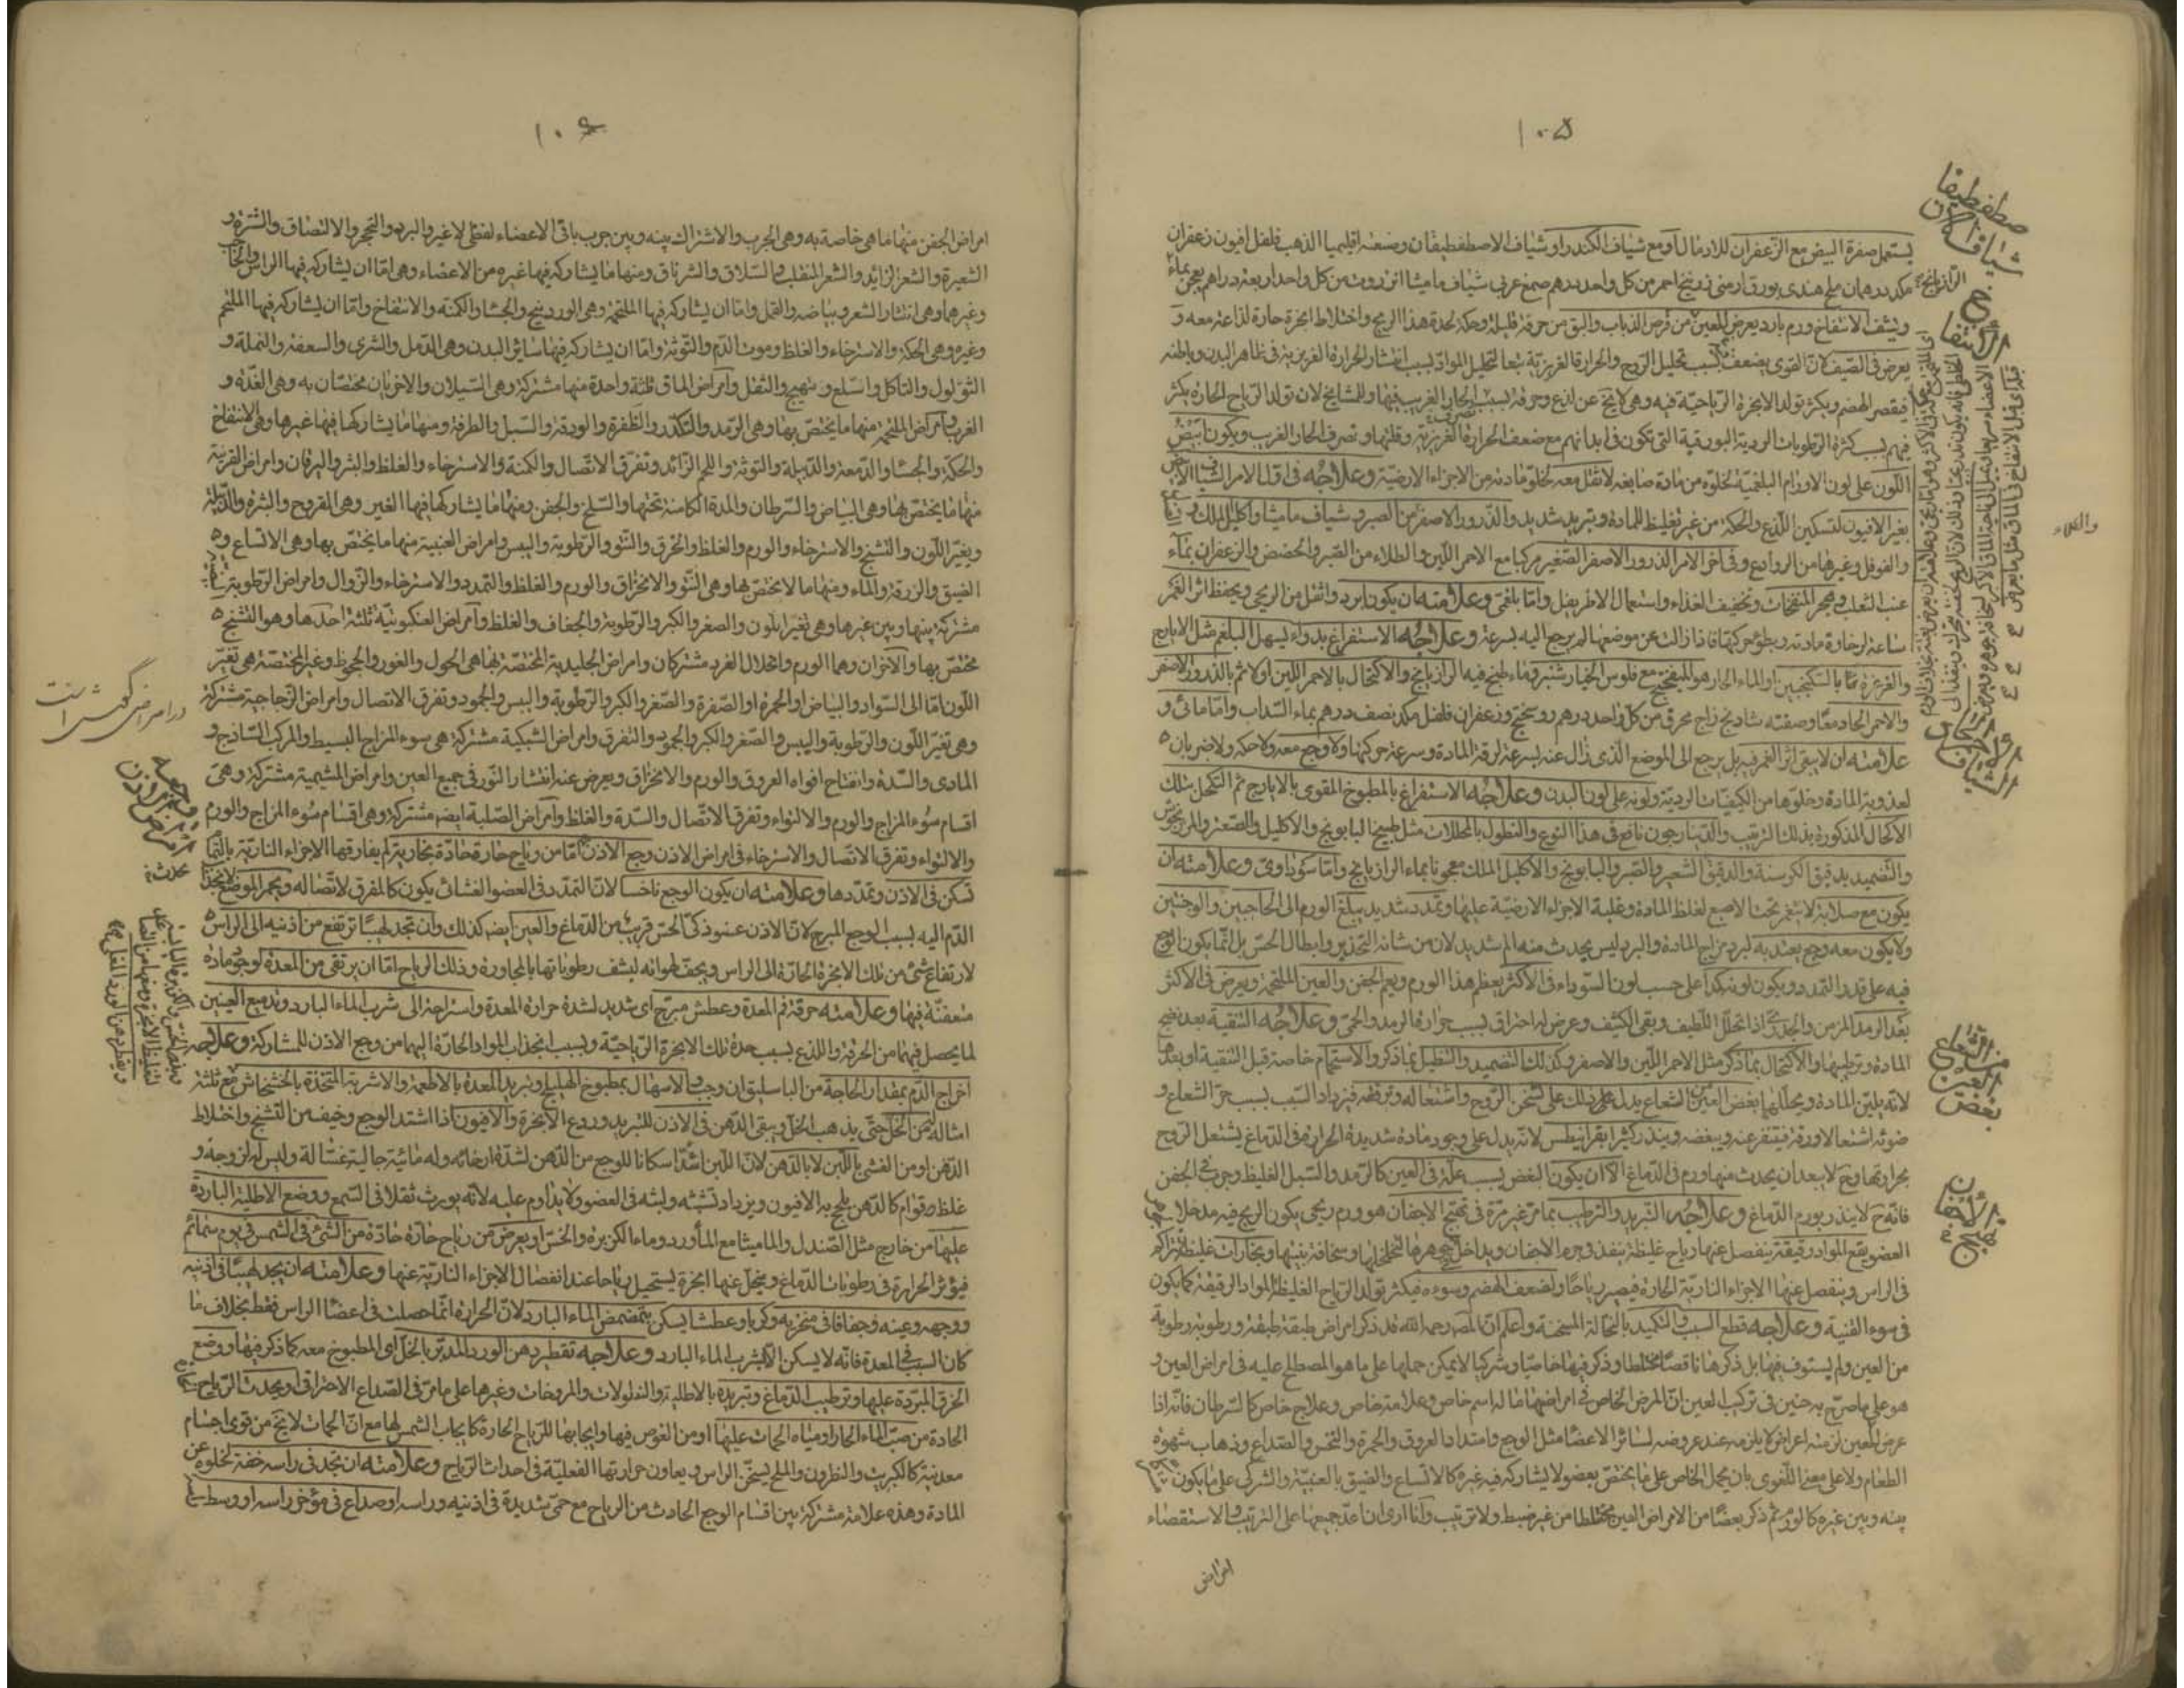 ١٠٥
يستعمل صفرة البيض مع الزعفران للاردمال او مع شياف الكندر او شياف الاصطفطيقان وصفته اقليميا الذهب فلفل افيون زعفران
من كل واحد درهم صمغ عربي شياف ماميثا انزروت من كل واحد اربعة دراهم يعجن بماء
الرازيانج
الانتفاخ ورم بارد يعرض للعين من قرص الذباب والبق من حرقة قليلة وحكة لحدة هذا الريح واختلاط ابخرة حارة لذاعة معه و
يعرض في الصيف لان القوى يضعف بسبب تحليل الروح والحرارة الغريزية تبعا لتحليل المواد بسبب انتشار الحرارة الغريزية في ظاهر البدن وباطنه
فيقصر الهضم ويكثر تولد الابخرة الرياحية فيه وهي لا يخ عن لذع وحرقة لسبب الحار الغريب فيها وللمشايخ لان تولد الرياح الحارة يكثر
فيهم بسبب كثرة الرطوبات الردية البورقية التي تكون في ابدانهم مع ضعف الحرارة الغريزية وقلتها وتصرف الحار الغريب ويكون
اللون على لون الاورام البلغمية لخلوه من مادة صابغة لا ثقل معه لخلو مادته من الاجزاء الارضية وعلاجه في اول الامر الشياف الابيض
بغير الافيون لتسكين اللذع والحكة من غير تغليظ للمادة وتبريد شديد والذرور الاصفر من الصبر وشياف ماميثا واكليل الملك
والفوفل وغيرها من الروادع وفي اخر الامر الذرور الاصفر الصغير مركبا مع الاحمر اللين والطلاء من الصبر والحضض والزعفران بماء
عنب الثعلب وهجر المنفخات وتخفيف الغذاء واستعمال الاطريفل واما بلغمي وعلامته ان يكون ابرد واثقل من الريحي ويحفظ اثر الغمز
ساعة لرخاوة مادته وبطؤ حركتها فاذا زالت عن موضعها لم يرجع اليه بسرعة وعلاجه الاستفراغ بدواء يسهل البلغم مثل الايارج
والغرغرة بما بالسكنجبين او الماء الحار مع فلوس الخيار شنبر وماء طبخ فيه الرازيانج والاكتحال بالاحمر اللين اولا ثم بالذرور الاصفر
والاحمر الحاد معا وصفته شادنج زاج محرق من كل واحد درهم روسختج وزعفران فلفل من كل نصف درهم بماء السداب واما مائي و
علامته ان لا يبقى اثر الغمز فيه بل يرجع الى الموضع الذي زال عنه بسرعة لرقة المادة وسرعة حركتها ولا وجع معه ولا حكة ولا ضربان
لعذوبة المادة وخلوها من الكيفيات الردية ولونه على لون البدن وعلاجه الاستفراغ بالمطبوخ المقوى بالايارج ثم التكحل بتلك
الاكحال المذكورة بذلك الترتيب نافع في هذا النوع والنطول بالمحللات مثل طبيخ البابونج والاكليل والصعتر والمرزنجوش
والتضميد بدقيق الكرسنة والدقيق الشعير والصبر والبابونج والاكليل الملك معجونا بماء الرازيانج واما سوداوي وعلامته ان
يكون مع صلابة لا ينغمز تحت الاصبع لغلظ المادة وغلبة الاجزاء الارضية عليها وتمدد شديد يبلغ الورم الى الحاجبين والوجنتين
ولا يكون معه وجع يعتد به لبرد مزاج المادة والبرد ليس يحدث منه الم شديد لان من شانه التخدير وابطال الحس بل انما يكون الوجع
فيه على قدر التمدد ويكون لونه كمدا على حسب لون السوداء في الاكثر يعظم هذا الورم ويعم الجفن والعين الملتحمة ويعرض في الاكثر
بعد الرمد المزمن والجدري اذا تحلل اللطيف وبقي الكثيف وعرض له احتراق بسبب حرارة الرمد والحمى وعلاجه التنقية بعد نضج
المادة وترطيبها والاكتحال بما ذكر مثل الاحمر اللين والاصفر وكذلك التضميد والتنطيل بما ذكر والاستحمام خاصة قبل التنقية او بعدها
لانه يلين المادة ويحللها بغض العين الشعاع يدل على تسخن الروح واشتعاله وترققه فيزداد السبب بسبب حر الشعاع و
ضوئه اشتعالا ورقة فيتنفر عنه ويبغضه وينذر كثيرا بقرانيطس لانه يدل على وجود مادة شديدة الحرارة في الدماغ يشتعل الروح
بحرارتها وح لا يبعد ان يحدث منها ورم في الدماغ الا ان يكون البغض بسبب علة في العين كالرمد والسبل الغليظ وجرب الجفن
فانه ح لا ينذر بورم الدماغ وعلاجه التبريد والترطيب بما مر غير مرة في تهيج الاجفان هو ورم ريحي يكون الريح فيه مداخلا
العضو يقع المواد رقيقة ينفصل عنها رياح غليظة ينفذ في جرم الاجفان ويداخل جوهرها لتخلخلها وسخافة بنيتها وبخارات غليظة
في الراس وينفصل عنها الاجزاء النارية الحارة فيصير رياحا ولضعف الهضم وسوءه فيكثر تولد الرياح الغليظة المواد الرقيقة كما يكون
في سوء القنية وعلاجه قطع السبب والتكميد بالنخالة المسخنة واعلم ان المصـ رحمه الله قد ذكر امراض طبقة طبقة ورطوبة رطوبة
من العين ولم يستوف فيها بل ذكرها ناقصا مختلطا وذكر فيها خاصيا وشركيا لا يمكن حملها على ما هو المصطلح عليه في امراض العين و
هو على ما صرح به حنين في تركيب العين ان المرض الخاص في امراضها ما له اسم خاص وعلامة خاص وعلاج خاص كالسرطان فانه اذا
عرض للعين لزمته اعراض لا يلزمه عند عروضه لسائر الاعضا مثل الوجع وامتداد العروق والحمرة والنخس والصداع وذهاب شهوة
الطعام ولا على معنى اللغوي بان يحمل الخاص على ما يختص بعضو لا يشاركه فيه غيره كالاتساع والضيق بالعنبية والشركي على ما يكون
بينه وبين غيره كالورم ثم ذكر بعضا من الامراض العين مختلطا من غير ضبط ولا ترتيب وانا ارى ان اعد جميعها على الترتيب والاستقصاء
امراض
شياف اصطفطيقان
الانتفاخ
بغض العين الشعاع
تهيج الاجفان
١٠٦
امراض الجفن منها ما هي خاصة به وهي الجرب والاشتراك بينه وبين جرب باقي الاعضاء لفظي لا غير والبرد والتحجر والالتصاق والشترة و
الشعيرة والشعر الزايد والشعر المنقلب والسلاق والشرناق ومنها ما يشاركه فيها غيره من الاعضاء وهي اما ان يشاركه فيها الراس والحاجب
وغيرهما وهي انتثار الشعر وبياضه والقمل واما ان يشاركه فيها الملتحمة وهي الوردينج والجشا والكمنة والانتفاخ واما ان يشاركه فيها الملتحم
وغيره وهي الحكة والاسترخاء والغلظ وموت الدم والتوثة واما ان يشاركه فيها سائر البدن وهي الدمل والشرى والسعفة والنملة و
الثؤلول والتاكل والسلع والتهيج والثقل وامراض الماق ثلثة واحدة منها مشتركة وهي السيلان والاخريان مختصتان به وهي الغدة و
الغرب وامراض الملتحمة منها ما يختص بها وهي الرمد والتكدر والظفرة والودقة والسبل والطرفة ومنها ما يشاركها فيها غيرها وهي الانتفاخ
والحكة والجسا والدمعة والدبيلة والتوثة واللحم الزائد وتفرق الاتصال والكمنة والاسترخاء والغلظ والبثر واليرقان وامراض القرنية
منها ما يختص بها وهي البياض والسرطان والمدة الكامنة تحتها والسلخ والحفر ومنها ما يشاركها فيها الغير وهي القروح والبثرة والدبيلة
وتغير اللون والتشنج والاسترخاء والورم والغلظ والخرق والنتو والرطوبة واليبس وامراض العنبية منها ما يختص بها وهي الاتساع و
الضيق والزرقة والماء ومنها ما لا يختص بها وهي النتو والانخراق والورم والغلظ والتمدد والاسترخاء والزوال وامراض الرطوبة البيضية
مشتركة بينها وبين غيرها وهي تغير اللون والصغر والكبر والرطوبة والجفاف والغلظ وامراض العنكبوتية ثلثة احدها وهو التشنج
مختص بها والاخران وهما الورم وانحلال الفرد مشتركان وامراض الجليدية المختصة بها هي الحول والغور والجحوظ وغير المختصة هي تغير
اللون اما الى السواد والبياض او الحمرة او الصفرة والصغر والكبر والرطوبة واليبس والجمود وتفرق الاتصال وامراض الزجاجية مشتركة
وهي تغير اللون والرطوبة واليبس والصغر والكبر والجمود والتفرق وامراض الشبكية مشتركة هي سوء المزاج البسيط والمركب الساذج و
المادي والسدة وانفتاح افواه العروق والورم والانخراق ويعرض عنه انتشار النور في جميع العين وامراض المشيمية مشتركة وهي
اقسام سوء المزاج والورم والالتواء وتفرق الاتصال والسدة والغلظ وامراض الصلبة ايضه مشتركة وهي اقسام سوء المزاج والورم
والالتواء وتفرق الاتصال والاسترخاء في امراض الاذن وجع الاذن اما من رياح حارة حادة بخارية لم يفارقها الاجزاء النارية بالتمام
تسكن في الاذن وتمددها وعلامته ان يكون الوجع ناخسا لان التمدد في العضو الغشائي يكون كالمفرق لاتصاله ويحمر الموضع لانجذاب
الدم اليه بسبب الوجع المبرح لان الاذن عضو ذكي الحس قريب من الدماغ والعين ايضه كذلك وان تجد لهيبا ترتفع من اذنيه الى الراس
لارتفاع شئ من تلك الابخرة الحارة الى الراس ويجف لهواته لينشف رطوباتها بالمجاورة وذلك الرياح اما ان يرتقى من المعدة لوجود مادة
متعفنة فيها وعلامته حرقة فم المعدة وعطش مبرح اي شديد لشدة حرارة المعدة واستراحة الى شرب الماء البارد وتدميع العينين
لما يحصل فيهما من الحرقة واللذع بسبب حدة تلك الابخرة الرياحية وبسبب انجذاب المواد الحارة اليهما من وجع الاذن للمشاركة وعلاجه
اخراج الدم بمقدار الحاجة من الباسليق ان وجب والاسهال بمطبوخ الهليلج وتبريد المعدة بالاطعمة والاشربة المتخذة بالخشخاش مع ثلثة
امثاله من الخل حتى يذهب الخل ويبقى الدهن في الاذن للتبريد وردع الابخرة والافيون اذا اشتد الوجع وخيف من التشنج واختلاط
الذهن او من الغشي باللبن لا بالدهن لان اللبن اشد اسكانا للوجع من الدهن لشدة ارخائه وله مائية جالية غسالة وليس له لزوجة و
غلظ قوام كالدهن يلحج به الافيون ويزداد تشبثه ولبثه في العضو ولا يداوم عليه لانه يورث ثقلا في السمع ووضع الاطلية الباردة
عليها من خارج مثل الصندل والماميثا مع الماورد وماء الكزبرة والخس او يعرض من رياح حارة حادة من المشي في الشمس في يوم سمائم
فيؤثر الحرارة في رطوبات الدماغ ويتحلل عنها ابخرة يستحيل رياحا عند انفصال الاجزاء النارية عنها وعلامته ان يجد لهيبا في اذنيه
ووجهه وعينه وجفافا في منخريه وكربا وعطشا يسكن بتمضمض الماء البارد لان الحرارة انما حصلت في اعضا الراس فقط بخلاف ما
كان السبب في المعدة فانه لا يسكن الا بشرب الماء البارد وعلاجه تقطير دهن الورد المدبر بالخل اي المطبوخ معه كما ذكر فيها ووضع
الخرق المبردة عليها وترطيب الدماغ وتبريده بالاطلية والنطولات والمروخات وغيرها على ما مر في الصداع الاحتراقي او يحدث الرياح
الحادة من صب الماء الحار او مياه الحمات عليها او من الغوص فيها وايجابها للرياح الحارة كايجاب الشمس لها مع ان الحمات لا يخ من قوى اجسام
معدنية كالكبريت والنطرون والملح يسخن الراس ويعاون حرارتها الفعلية في احداث الرياح وعلامته ان تجد في راسه خفة لخلوه عن
المادة وهذه علامة مشتركة بين اقسام الوجع الحادث من الرياح مع حمى شديدة في اذنيه وراسه او صداع في مؤخر راسه او وسط
در امراض گوش است
امراض الاذن